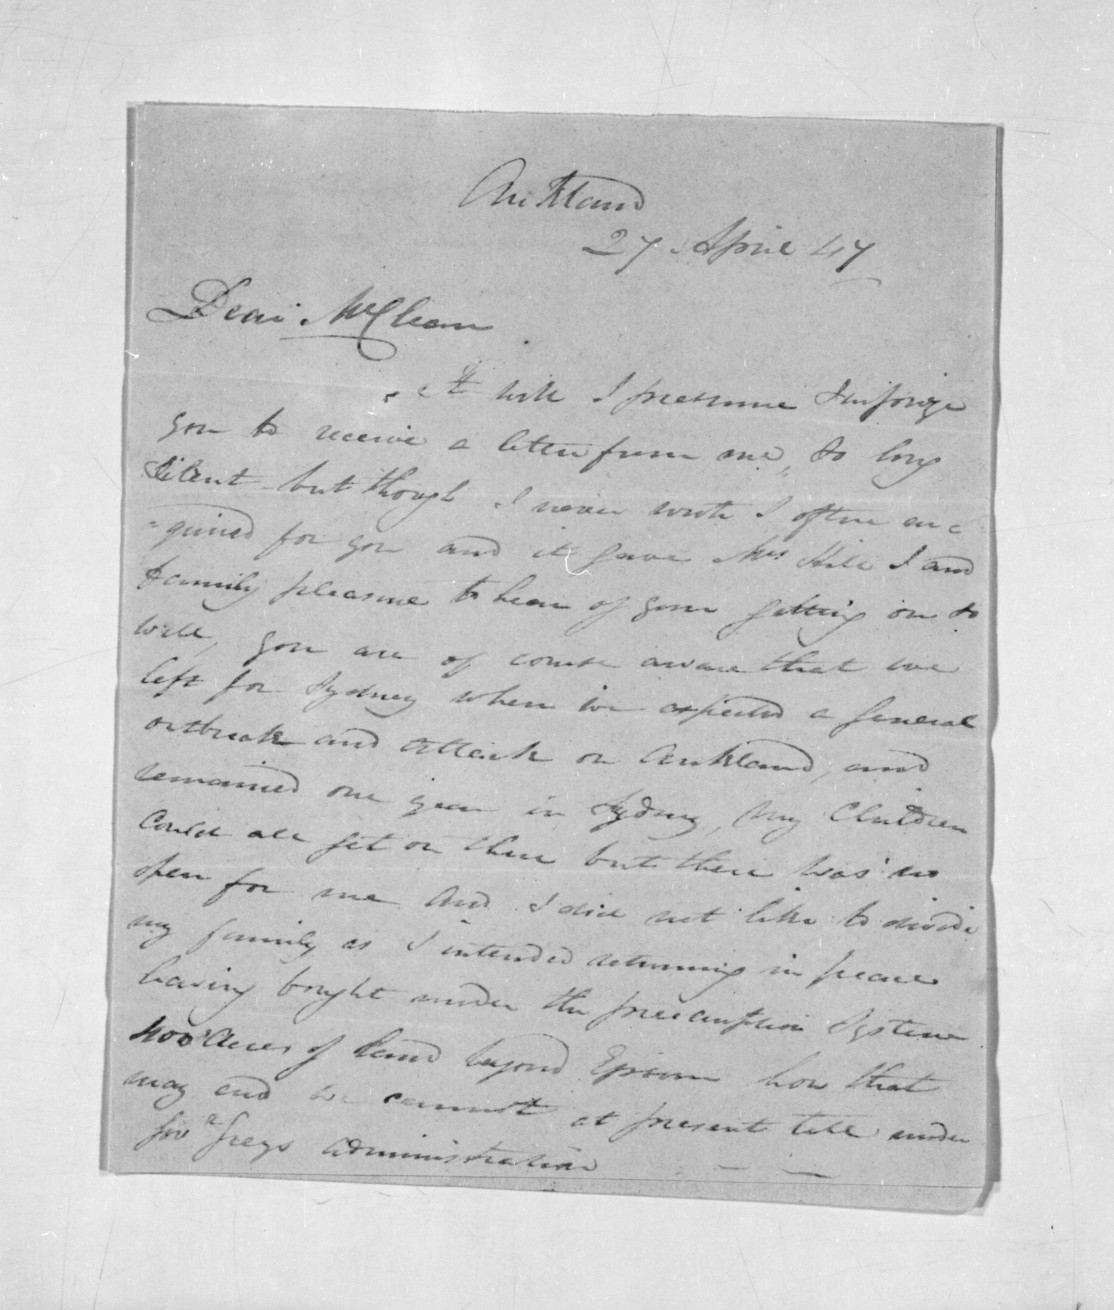 Auckland
27 April 47
Dear McClean
It will I presume surprize
you to receive a letter from me, so long
silent but though I never wrote I often en=
=quired for you and it gave Mrs Hill I and
family pleasure to hear of your getting on so
well, you are of course aware that we
left for Sydney when we expected a general
outbreak and attack on Auckland, and
remained one year in Sydney, my Children
could all get on there but there was no
open for me and I did not like to divide
my family as I intended returning in peace
having bought under the preemption System
400 Acres of Land beyond Epsom how that
may end we cannot at present tell under
Govr Greys administration